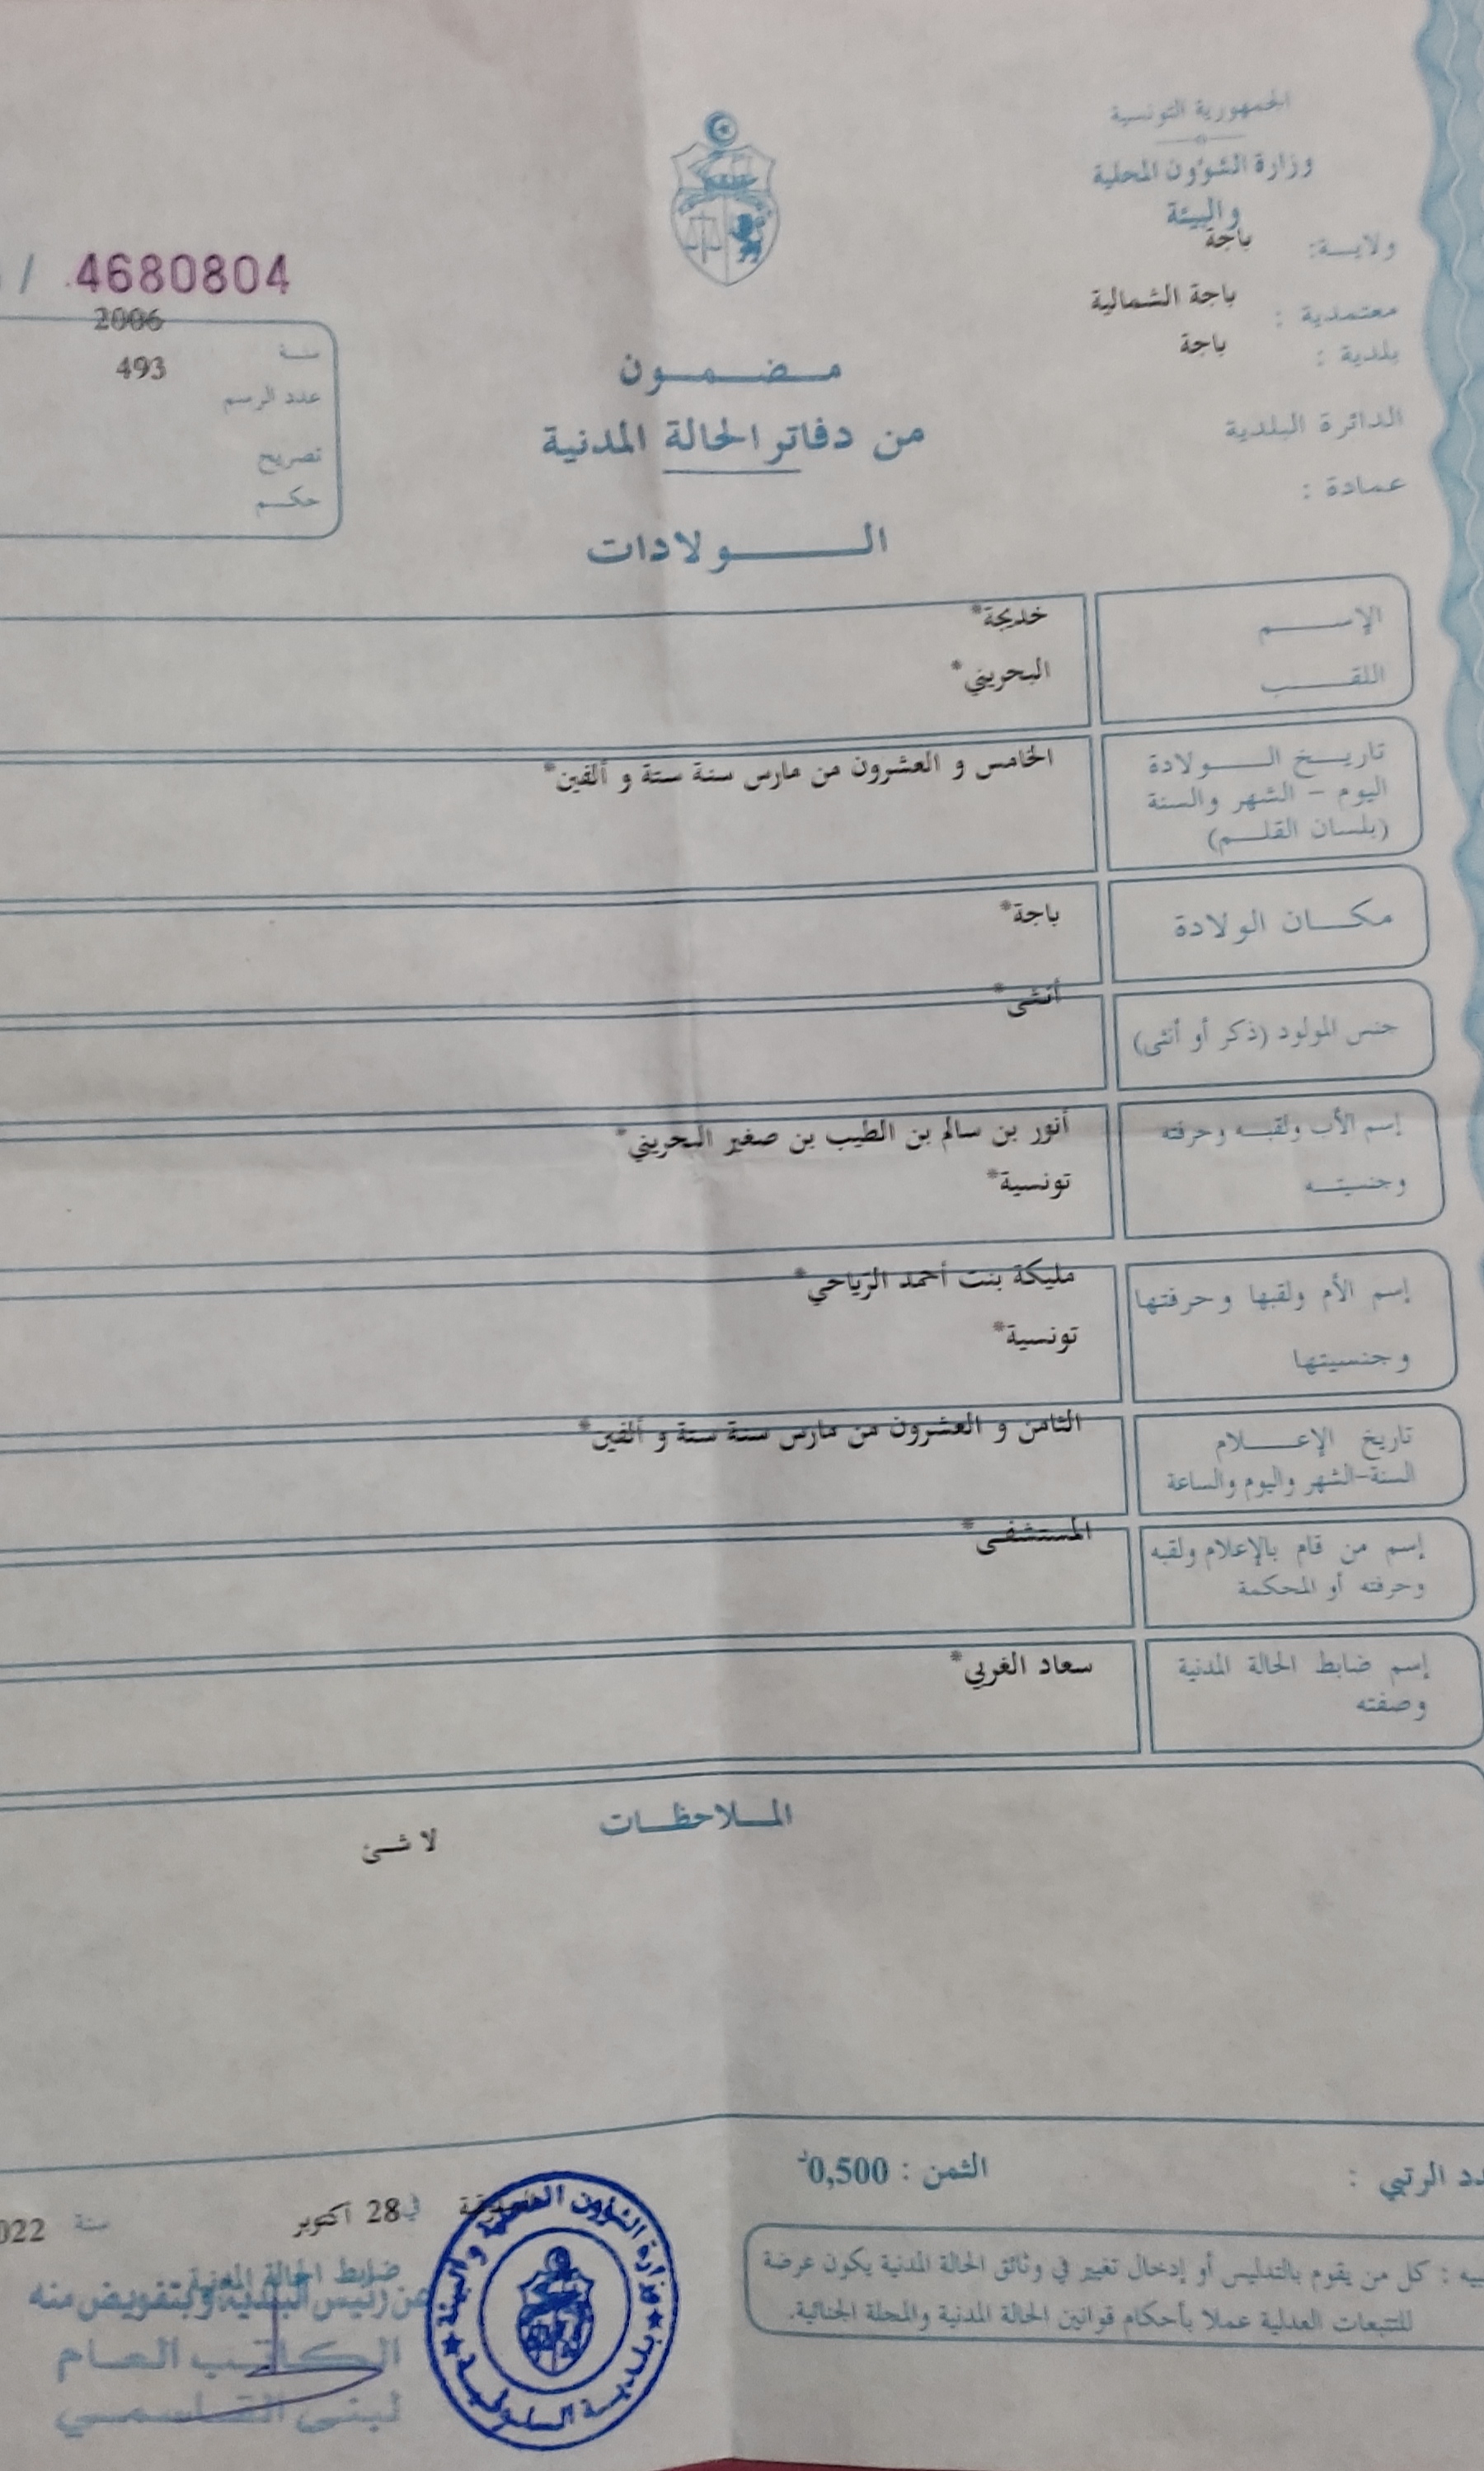 الجمهورية التونسية
وزارة الشؤون المحلية
والبيئة
ولايـة: باجة
معتمدية : باجة الشمالية
بلدية : باجة
الدائرة البلدية
عمادة :
/ 4680804
2006
سنة
493
عدد الرسم
تصريح
حكم
مضمون
من دفاتر الحالة المدنية
الولادات
الإسم خديجة*
اللقب البحريني*
تاريخ الولادة الخامس و العشرون من مارس سنة ستة و ألفين*
اليوم - الشهر والسنة
(بلسان القلم)
مكان الولادة باجة*
أنثى*
جنس المولود (ذكر أو أنثى)
إسم الأب ولقبه وحرفته أنور بن سالم بن الطيب بن صغير البحريني*
وجنسيته تونسية*
مليكة بنت أحمد الرياحي*
إسم الأم ولقبها وحرفتها
تونسية*
وجنسيتها
تاريخ الإعلام الثامن و العشرون من مارس سنة ستة و ألفين*
السنة-الشهر واليوم والساعة
المستشفى*
إسم من قام بالإعلام ولقبه
وحرفته أو المحكمة
إسم ضابط الحالة المدنية سعاد الغربي*
وصفته
الملاحظات
لا شئ
دد الرتبي :
الثمن : 0,500د
في 28 أكتوبر سنة 022
بيه : كل من يقوم بالتدليس أو إدخال تغيير في وثائق الحالة المدنية يكون عرضة
للتتبعات العدلية عملا بأحكام قوانين الحالة المدنية والمجلة الجنائية.
ضابط الحالة المدنية
عن رئيس البلدية وبتفويض منه
الكاتب العام
لبنى القاسمي
وزارة الشؤون المحلية والبيئة
بلدية السلوقية